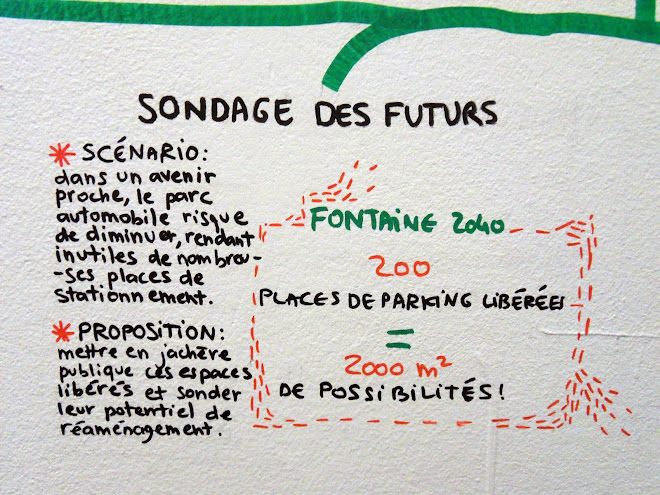 SONDAGE DES FUTURS
* SCÉNARIO:
dans un avenir
proche, le parc
automobile risque
de diminuer, rendant
inutiles de nombreu-
-ses places de
stationnement.
* PROPOSITION:
mettre en jachère
publique ces espaces
libérés et sonder
leur potentiel de
réaménagement.
FONTAINE 2040
200
PLACES DE PARKING LIBÉRÉES
=
2000 m²
DE POSSIBILITÉS!